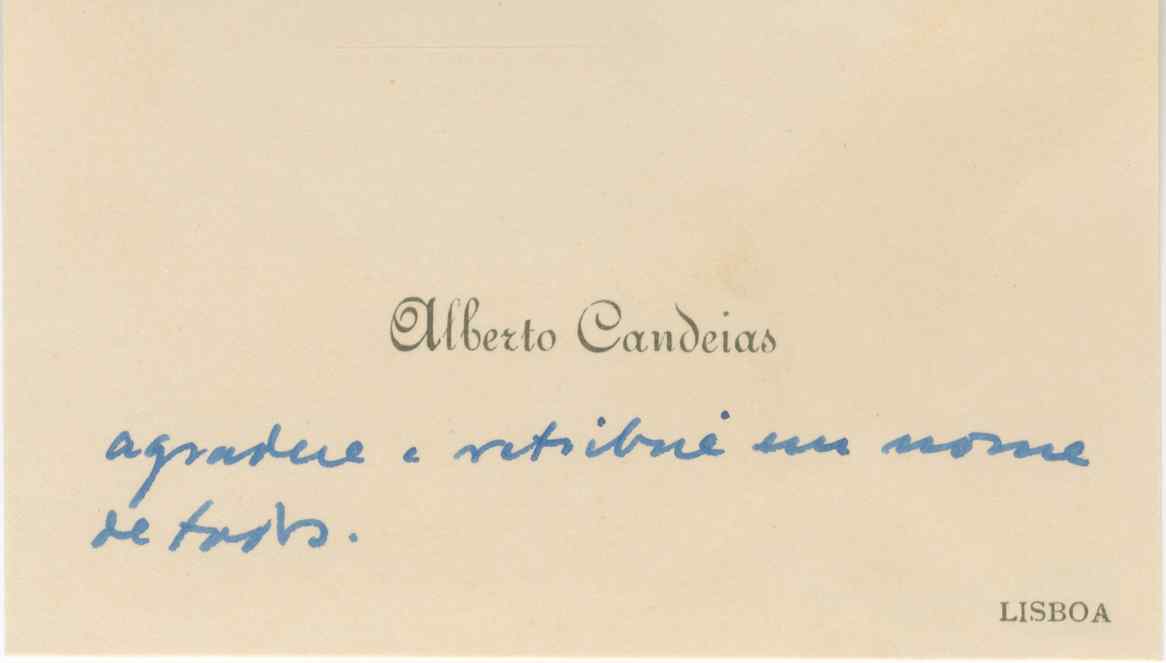 Alberto Candeias
agradece e retribui em nome
de todos.
LISBOA